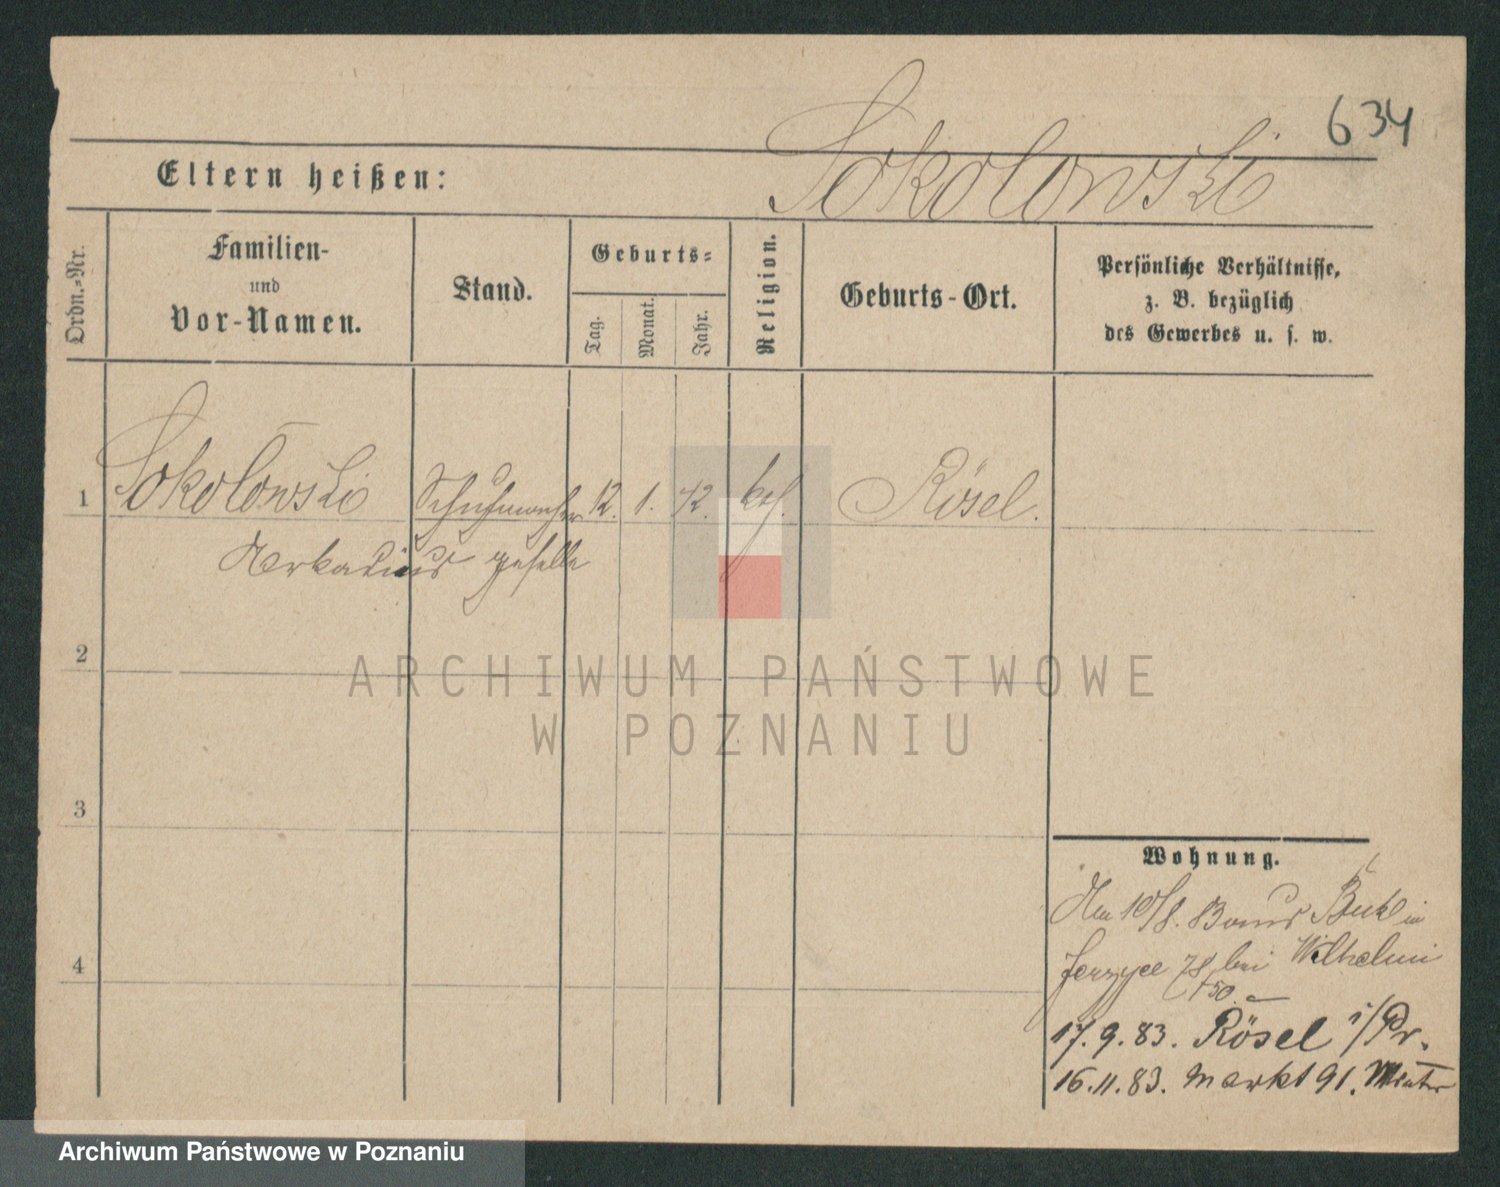 634
Sokolowski
Eltern heißen:
Ordn.-Nr.
Familien-
und
Vor-Namen.
Stand.
Geburts-
Tag.
Monat.
Jahr.
Religion.
Geburts-Ort.
Persönliche Verhältnisse,
z. B. bezüglich
des Gewerbes u. s. w.
1 Sokolowski Schuhmacher 12. 1. 42. kth. Rösel.
Arkadius geselle
2
ARCHIWUM PAŃSTWOWE
W POZNANIU
3
Wohnung.
10/8. Buk in
4
78 bei Wilhelmi
17. 9. 83. Rösel i/Pr.
16. 11. 83. Markt 91.
Archiwum Państwowe w Poznaniu